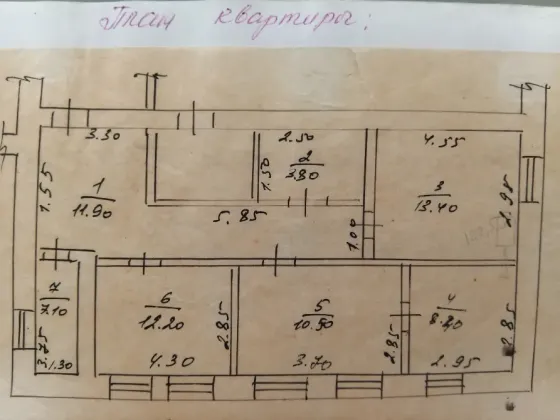 План квартиры:
3.30
2.50
4.55
1.55
1
11.90
1.50
2
3.80
3
13.40
2.98
5.85
1.00
7
7.10
3.75
1.30
6
12.20
2.85
4.30
5
10.50
2.85
3.70
4
8.40
2.85
2.95